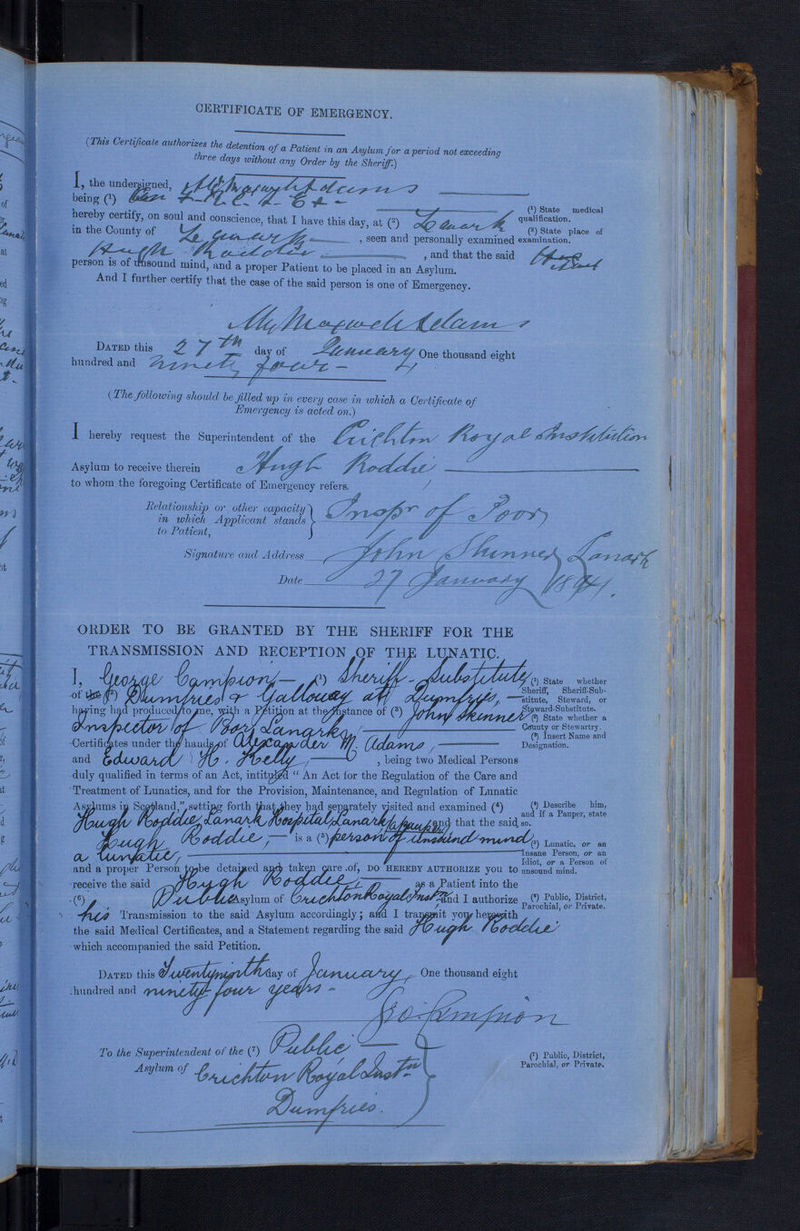 CERTIFICATE OF EMERGENCY.
(This Certificate authorizes the detention of a Patient in an Asylum for a period not exceeding
three days without any Order by the Sheriff.)
I, the undersigned, Maxwell Adams
being (¹)
hereby certify, on soul and conscience, that I have this day, at (²) Lanark
(¹) State medical qualification.
in the County of Lanark, seen and personally examined
(²) State place of examination.
Hugh Roddie, and that the said Hugh
person is of unsound mind, and a proper Patient to be placed in an Asylum.
And I further certify that the case of the said person is one of Emergency.
Maxwell Adams
DATED this 27th day of January One thousand eight
hundred and ninety four -
(The following should be filled up in every case in which a Certificate of
Emergency is acted on.)
I hereby request the Superintendent of the Crichton Royal Institution
Asylum to receive therein Hugh Roddie
to whom the foregoing Certificate of Emergency refers.
Relationship or other capacity
in which Applicant stands
to Patient,
Inspr of Poor
Signature and Address John Skinner, Lanark
Date 27 January 1894.
ORDER TO BE GRANTED BY THE SHERIFF FOR THE
TRANSMISSION AND RECEPTION OF THE LUNATIC.
I, George Campion - (¹) Sheriff-Substitute
(¹) State whether Sheriff, Sheriff-Substitute, Steward, or Steward-Substitute.
of the (²) Dumfries & Galloway at Dumfries, -
having had produced to me, with a Petition at the instance of (³) John Skinner
(²) State whether a County or Stewartry.
Inspector of Poor, Lanark,
Certificates under the hands of Alexander M. Adams, -
(³) Insert Name and Designation.
and Edward H. Kelly, -, being two Medical Persons
duly qualified in terms of an Act, intituled "An Act for the Regulation of the Care and
Treatment of Lunatics, and for the Provision, Maintenance, and Regulation of Lunatic
Asylums in Scotland," setting forth that they had separately visited and examined (⁴)
(⁴) Describe him, and if a Pauper, state so.
Hugh Roddie, Lanark Hospital, Lanark, a pauper and that the said
Hugh Roddie, - is a (⁵) person of unsound mind
(⁵) Lunatic, or an Insane Person, or an Idiot, or a Person of unsound mind.
a lunatic,
and a proper Person to be detained and taken care of, DO HEREBY AUTHORIZE you to
receive the said Hugh Roddie, - as a Patient into the
(⁶) Public Asylum of Crichton Royal Instn and I authorize
(⁶) Public, District, Parochial, or Private.
his Transmission to the said Asylum accordingly; and I transmit you herewith
the said Medical Certificates, and a Statement regarding the said Hugh Roddie
which accompanied the said Petition.
DATED this Twentyninth day of January, One thousand eight
hundred and ninety four years -
Campion
To the Superintendent of the (⁷) Public -
(⁷) Public, District, Parochial, or Private.
Asylum of Crichton Royal Instn
Dumfries.